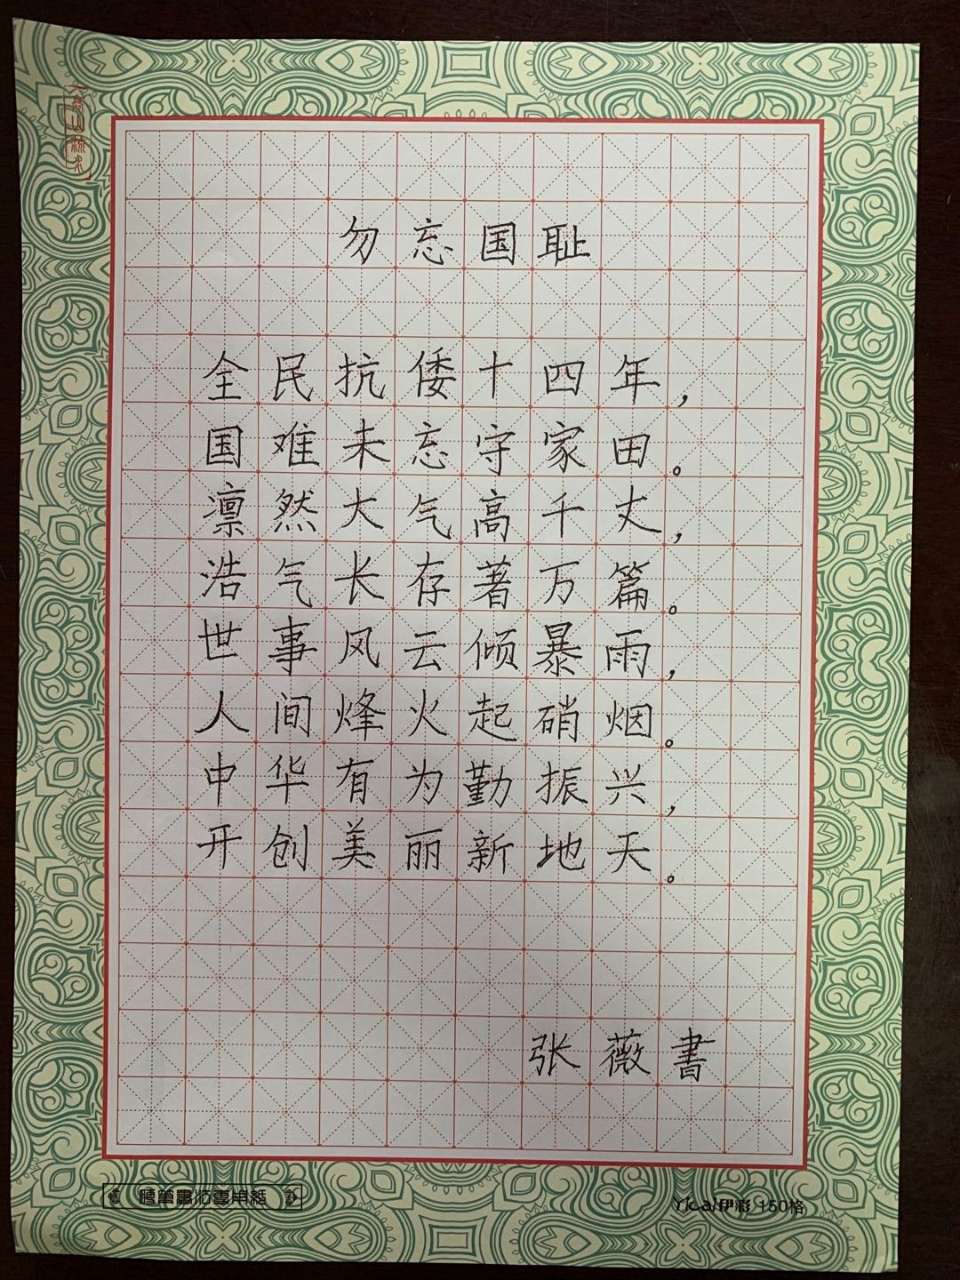 勿忘国耻
全民抗倭十四年，
国难未忘守家田。
凛然大气高千丈，
浩气长存著万篇。
世事风云倾暴雨，
人间烽火起硝烟。
中华有为勤振兴，
开创美丽新地天。
张薇書
硬笔书法专用纸
Yical伊彩 150格